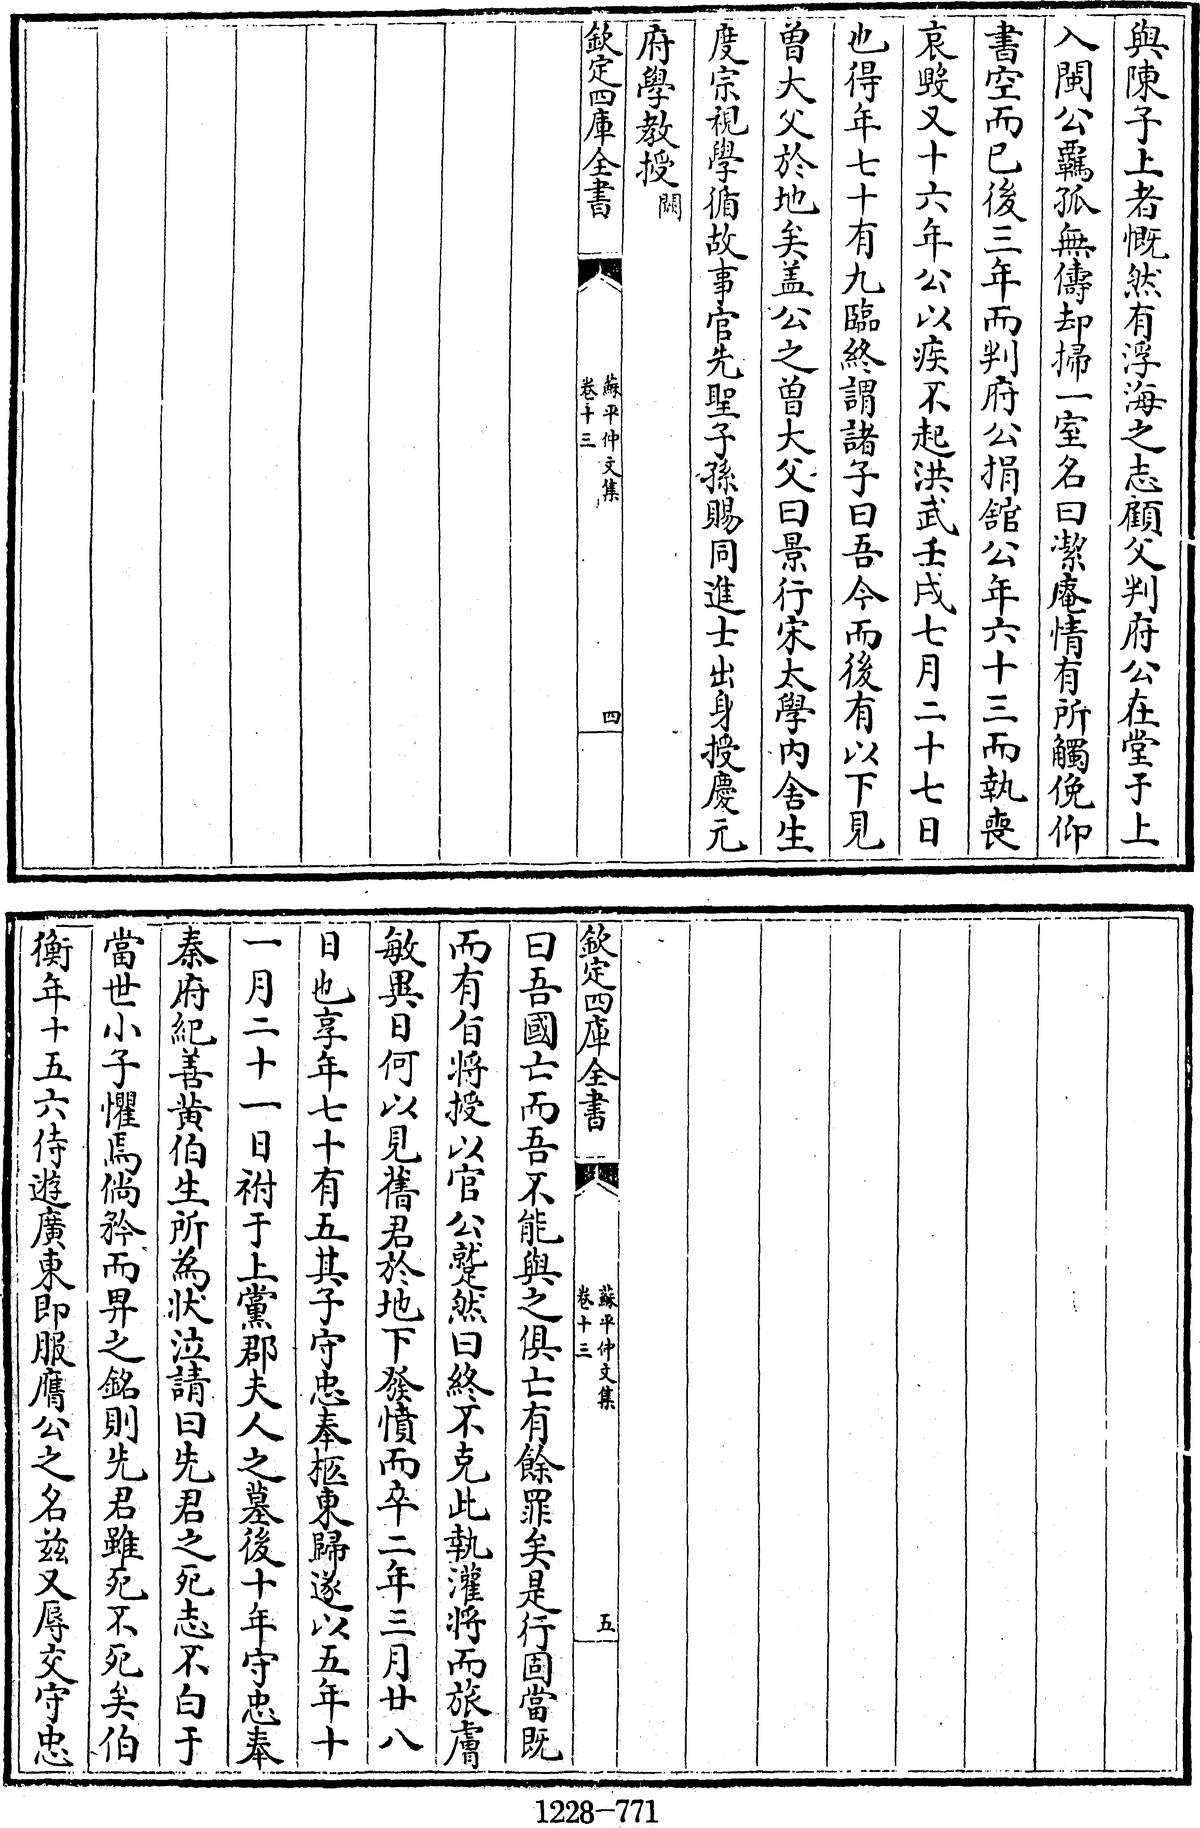 與陳子上者慨然有浮海之志顧父判府公在堂于上
入閩公羈孤無儔却掃一室名曰潔庵情有所觸俛仰
書空而已後三年而判府公捐舘公年六十三而執喪
哀毁又十六年公以疾不起洪武壬戌七月二十七日
也得年七十有九臨終謂諸子曰吾今而後有以下見
曾大父於地矣盖公之曾大父曰景行宋太學内舍生
度宗視學循故事官先聖子孫賜同進士出身授慶元
府學教授闕
欽定四庫全書
蘇平仲文集
卷十三
四
欽定四庫全書
蘇平仲文集
卷十三
五
曰吾國亡而吾不能與之俱亡有餘罪矣是行固當既
而有㫖將授以官公蹵然曰終不克此執灌將而旅膚
敏異日何以見舊君於地下發憤而卒二年三月廿八
日也享年七十有五其子守忠奉柩東歸遂以五年十
一月二十一日祔于上黨郡夫人之墓後十年守忠奉
秦府紀善黄伯生所為狀泣請曰先君之死志不白于
當世小子懼焉倘矜而畀之銘則先君雖死不死矣伯
衡年十五六侍遊廣東即服膺公之名兹又辱交守忠
1228-771